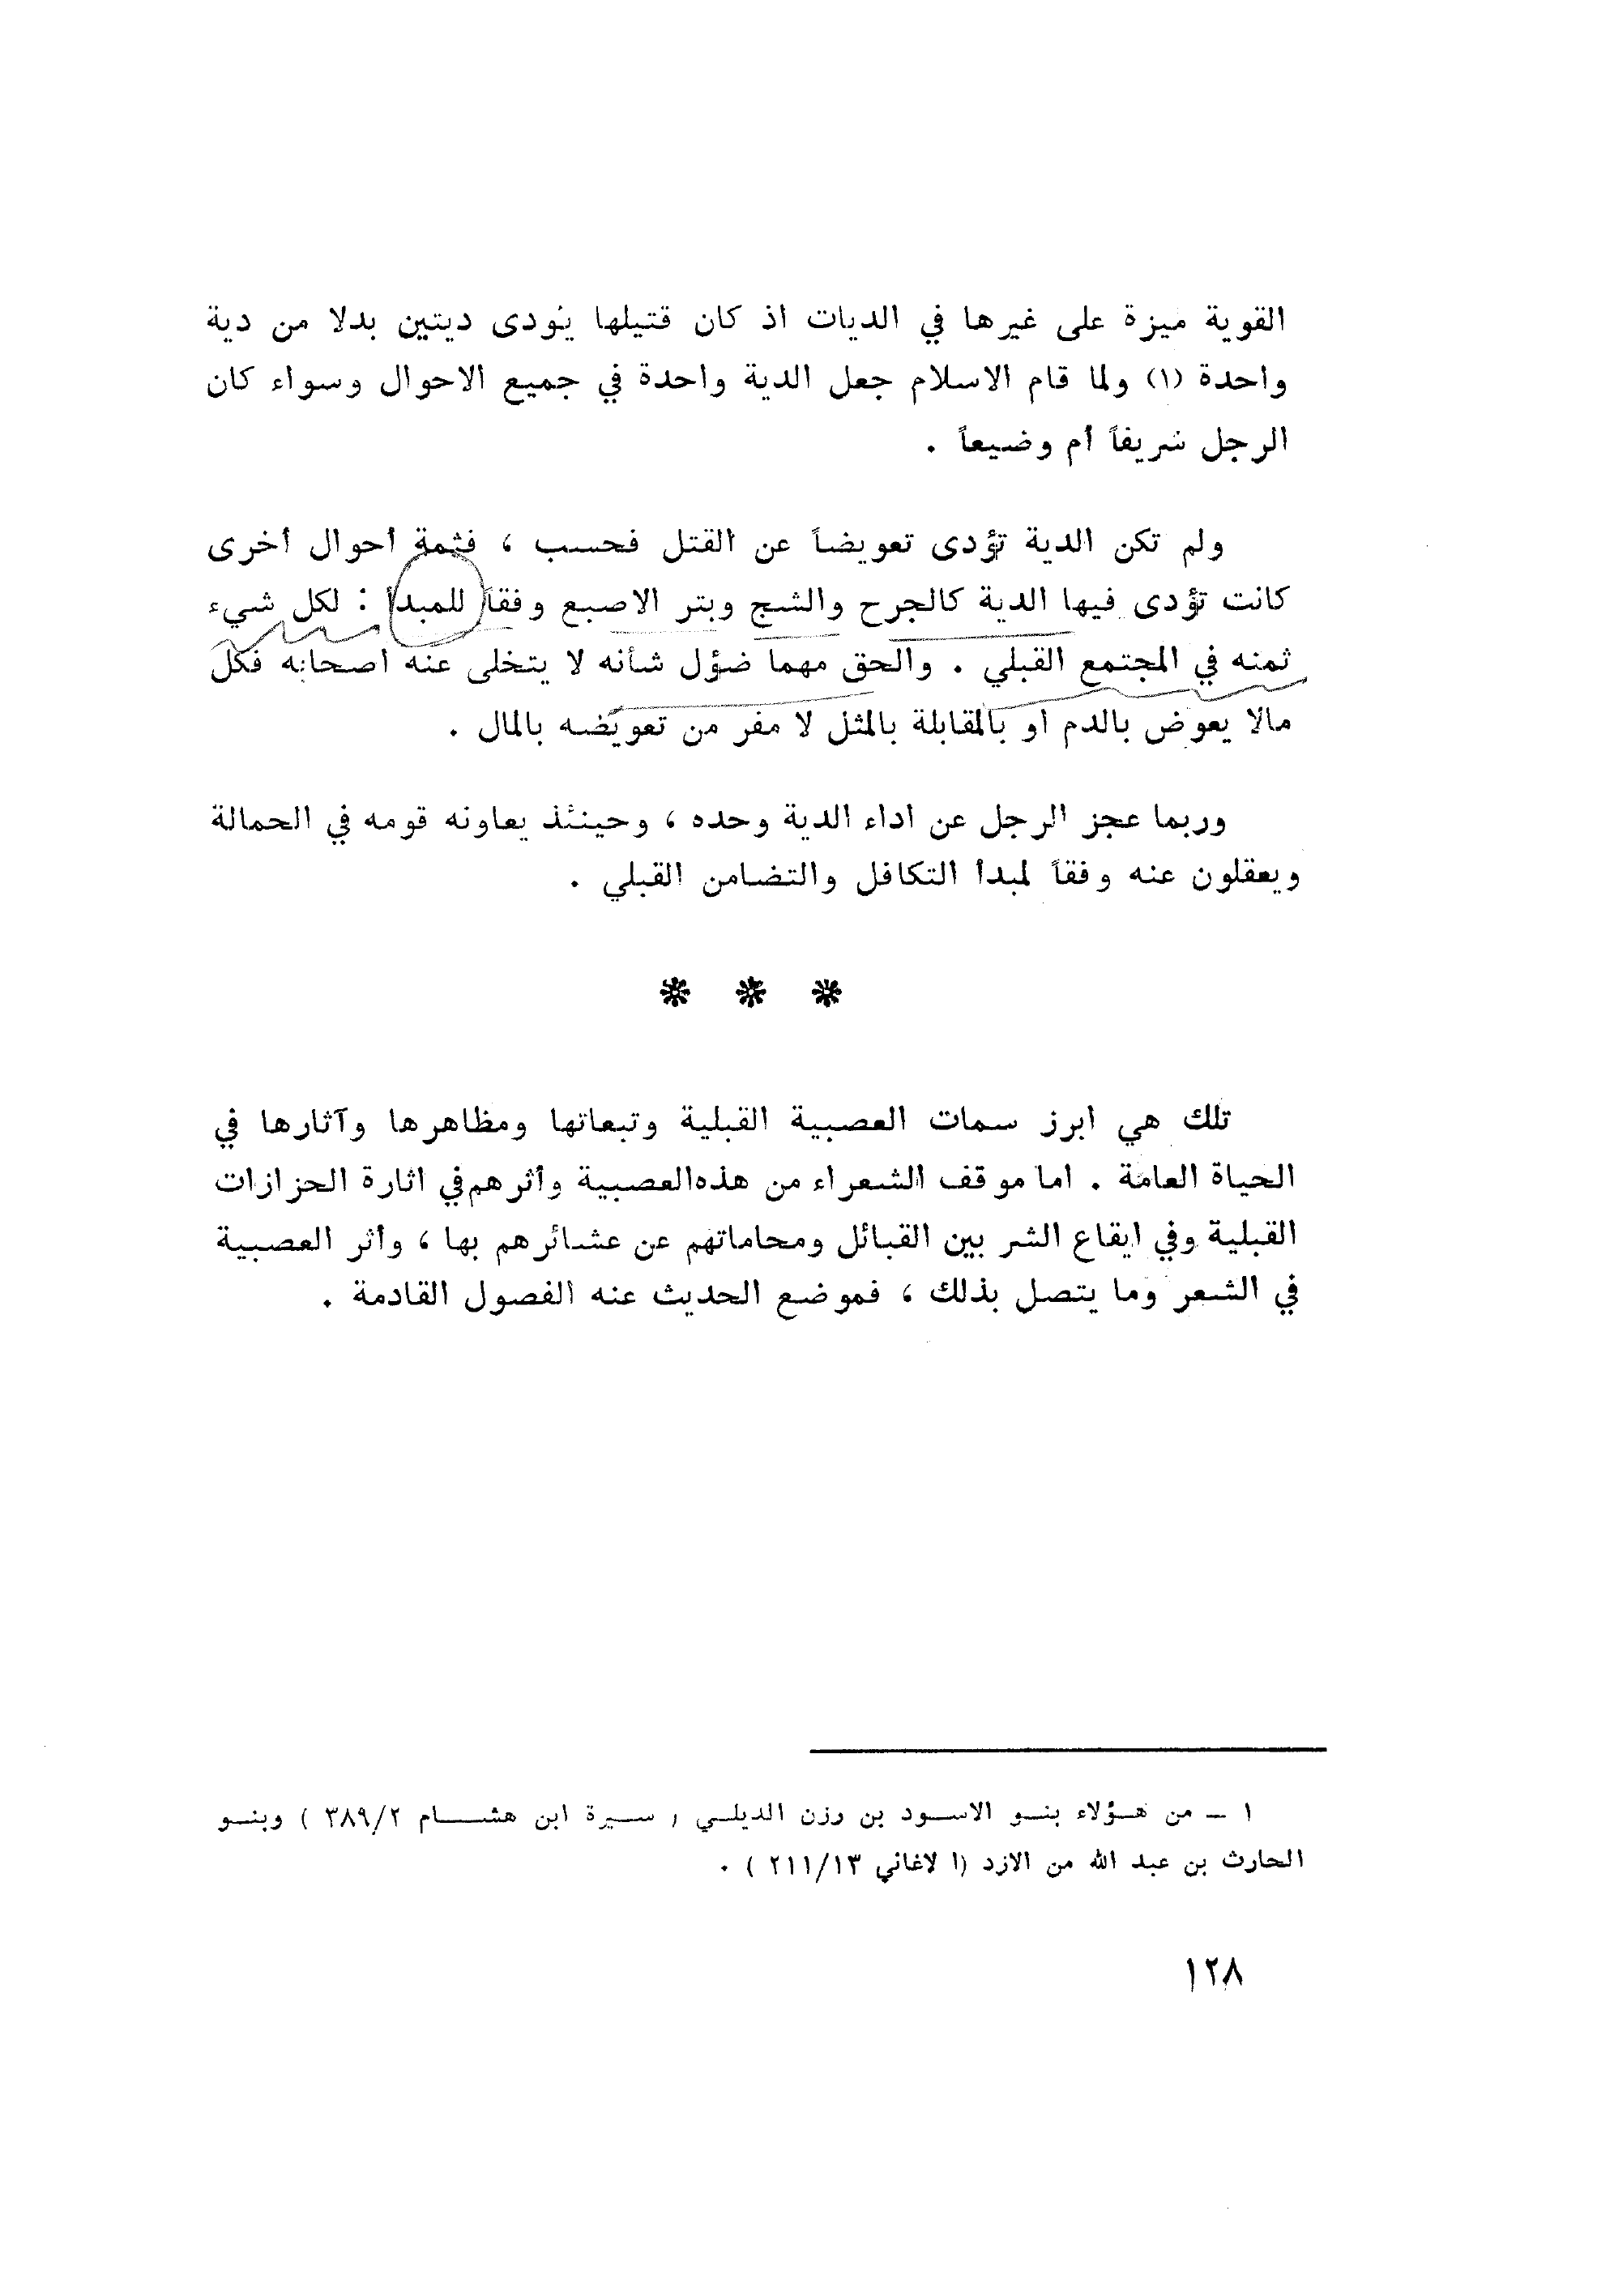 القوية ميزة على غيرها في الديات اذ كان قتيلها يؤدى ديتين بدلا من دية
واحدة (١) ولما قام الاسلام جعل الدية واحدة في جميع الاحوال وسواء كان
الرجل شريفاً أم وضيعاً .
ولم تكن الدية تؤدى تعويضاً عن القتل فحسب ، فثمة أحوال أخرى
كانت تؤدى فيها الدية كالجرح والشج وبتر الاصبع وفقاً للمبدأ : لكل شيء
ثمنه في المجتمع القبلي . والحق مهما ضؤل شأنه لا يتخلى عنه اصحابه فكل
مالا يعوض بالدم أو بالمقابلة بالمثل لا مفر من تعويضه بالمال .
وربما عجز الرجل عن اداء الدية وحده ، وحينئذ يعاونه قومه في الحمالة
ويعقلون عنه وفقاً لمبدأ التكافل والتضامن القبلي .
* * *
تلك هي ابرز سمات العصبية القبلية وتبعاتها ومظاهرها وآثارها في
الحياة العامة . اما موقف الشعراء من هذه العصبية وأثرهم في اثارة الحزازات
القبلية وفي ايقاع الشر بين القبائل ومحاماتهم عن عشائرهم بها ، وأثر العصبية
في الشعر وما يتصل بذلك ، فموضع الحديث عنه الفصول القادمة .
١ – من هؤلاء بنو الاسود بن رزن الديلي ( سيرة ابن هشام ٣٨٩/٢ ) وبنو
الحارث بن عبد الله من الازد (ا لاغاني ٢١١/١٣ ) .
١٢٨